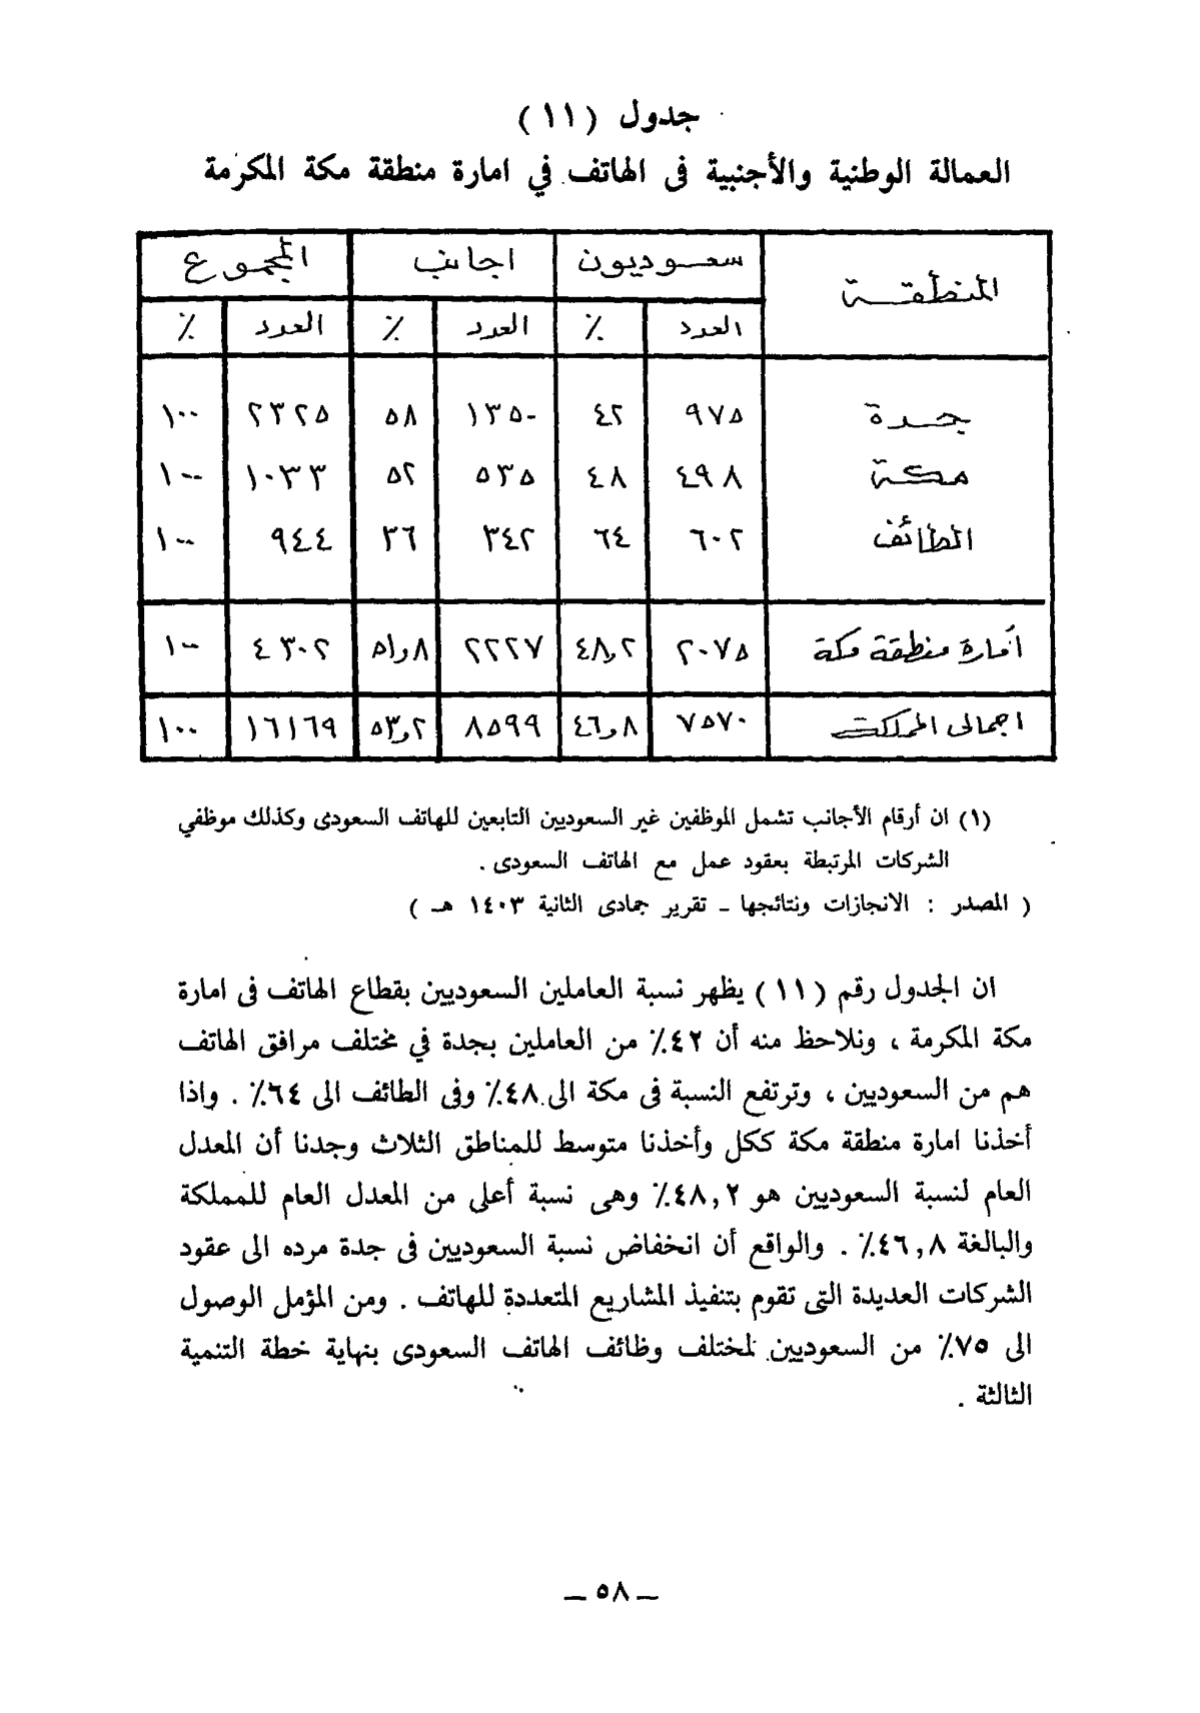 جدول ( ١١ )
العمالة الوطنية والأجنبية فى الهاتف في امارة منطقة مكة المكرمة
المنطقة سعوديون اجانب المجموع
العدد ٪ العدد ٪ العدد ٪
جدة ٩٧٥ ٤٢ ١٣٥٠ ٥٨ ٢٣٢٥ ١٠٠
مكة ٤٩٨ ٤٨ ٥٣٥ ٥٢ ١٠٣٣ ١٠٠
الطائف ٦٠٢ ٦٤ ٣٤٢ ٣٦ ٩٤٤ ١٠٠
أمارة منطقة مكة ٢٠٧٥ ٤٨,٢ ٢٢٢٧ ٥١,٨ ٤٣٠٢ ١٠٠
اجمالى المملكة ٧٥٧٠ ٤٦,٨ ٨٥٩٩ ٥٣,٢ ١٦١٦٩ ١٠٠
(١) ان أرقام الأجانب تشمل الموظفين غير السعوديين التابعين للهاتف السعودى وكذلك موظفي
الشركات المرتبطة بعقود عمل مع الهاتف السعودى .
( المصدر : الانجازات ونتائجها ـ تقرير جمادى الثانية ١٤٠٣ هـ )
ان الجدول رقم ( ١١ ) يظهر نسبة العاملين السعوديين بقطاع الهاتف فى امارة
مكة المكرمة ، ونلاحظ منه أن ٤٢٪ من العاملين بجدة في مختلف مرافق الهاتف
هم من السعوديين ، وترتفع النسبة فى مكة الى ٤٨٪ وفى الطائف الى ٦٤٪ . واذا
أخذنا امارة منطقة مكة ككل وأخذنا متوسط للمناطق الثلاث وجدنا أن المعدل
العام لنسبة السعوديين هو ٤٨,٢٪ وهى نسبة أعلى من المعدل العام للمملكة
والبالغة ٤٦,٨٪ . والواقع أن انخفاض نسبة السعوديين فى جدة مرده الى عقود
الشركات العديدة التى تقوم بتنفيذ المشاريع المتعددة للهاتف . ومن المؤمل الوصول
الى ٧٥٪ من السعوديين لمختلف وظائف الهاتف السعودى بنهاية خطة التنمية
الثالثة .
ـ ٥٨ ـ